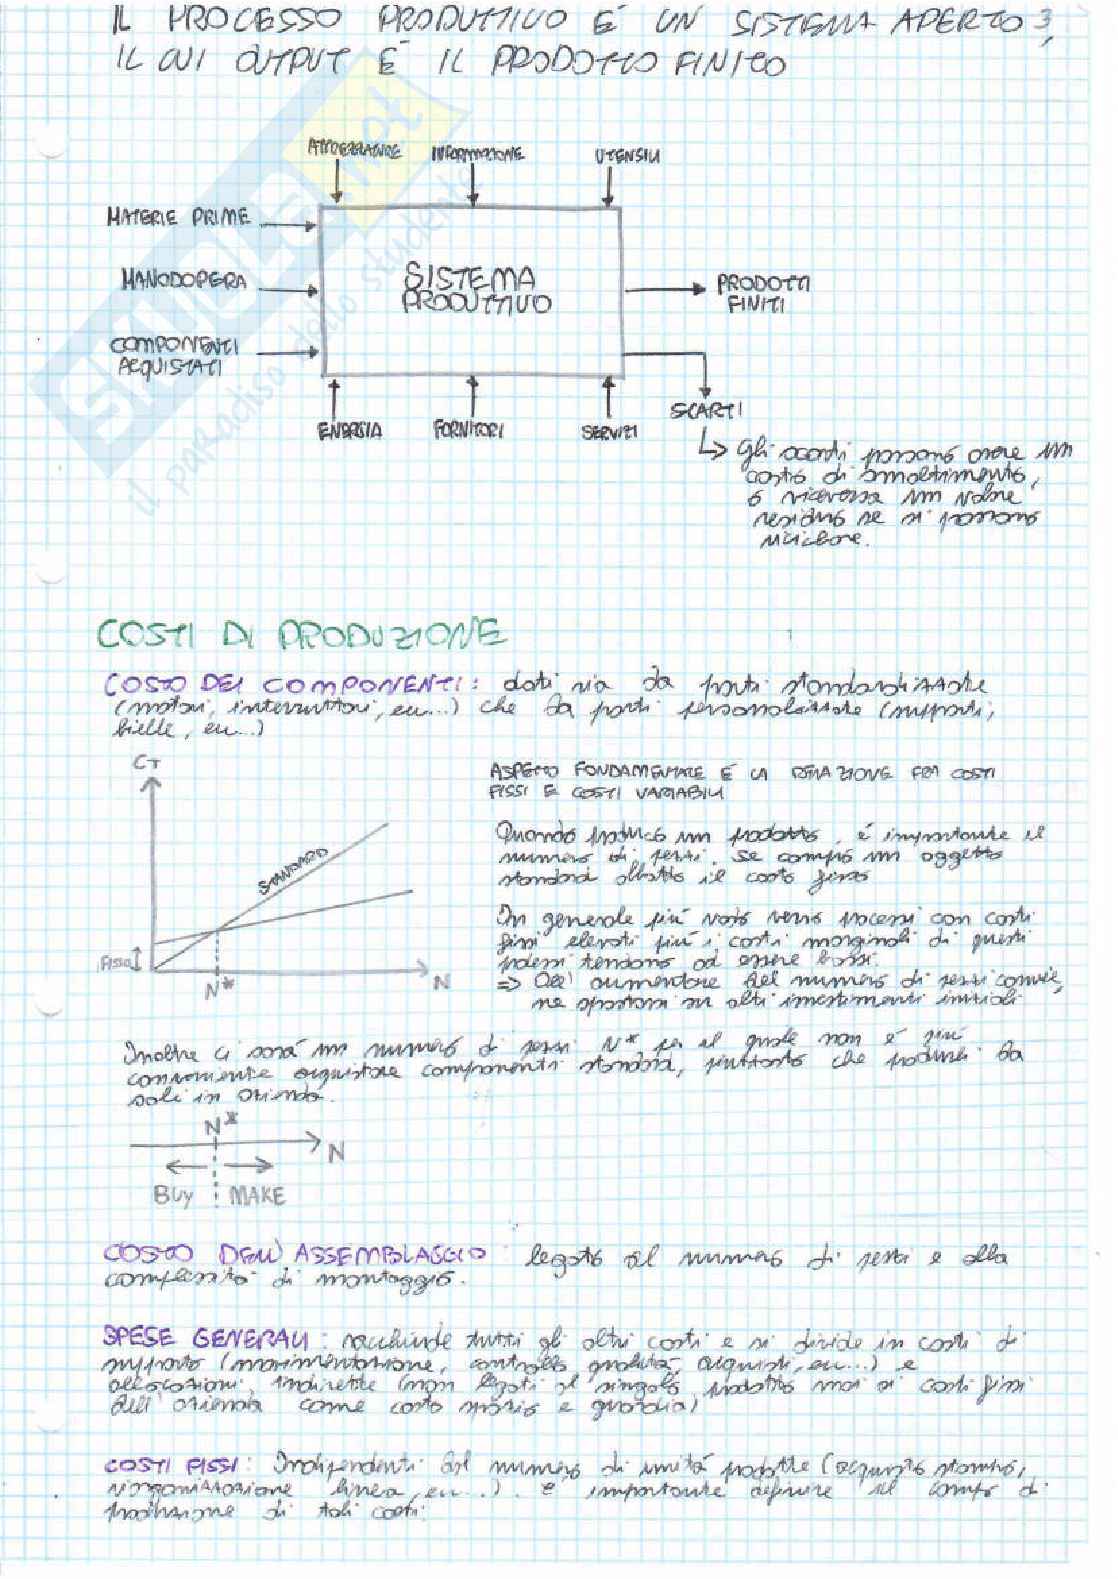 IL PROCESSO PRODUTTIVO È UN SISTEMA APERTO 3,
IL CUI OUTPUT È IL PRODOTTO FINITO
ATTREZZATURE INFORMAZIONE UTENSILI
MATERIE PRIME
MANODOPERA
COMPONENTI
ACQUISTATI
SISTEMA
PRODUTTIVO
PRODOTTI
FINITI
ENERGIA FORNITORI SERVIZI
SCARTI
Gli scarti possono avere un
costo di smaltimento,
o viceversa un valore
residuo se si possono
riciclare.
SKUOLA.net
il paradiso dello studente
COSTI DI PRODUZIONE
COSTO DEI COMPONENTI: dati sia da parti standardizzate
(motori, interruttori, ecc...) che da parti personalizzate (supporti,
bielle, ecc...)
CT
STANDARD
FISSO
N*
N
ASPETTO FONDAMENTALE È LA RELAZIONE FRA COSTI
FISSI E COSTI VARIABILI
Quando produco un prodotto, è importante il
numero di pezzi. Se compro un oggetto
standard abbatto il costo fisso
In generale più vado verso processi con costi
fissi elevati più i costi marginali di questi
tendono ad essere bassi.
=> All'aumentare del numero di pezzi convie
ne spostarsi su alti investimenti iniziali
Inoltre ci sarà un numero di pezzi N* per il quale non è più
conveniente acquistare componenti standard, piuttosto che produrli da
soli in azienda.
N*
N
BUY MAKE
COSTO DELL'ASSEMBLAGGIO legato al numero di pezzi e alla
complessità di montaggio.
SPESE GENERALI: racchiude tutti gli altri costi e si divide in costi di
supporto (movimentazione, controllo qualità, acquisti, ecc...) e
allocazioni indirette (non legati al singolo prodotto ma ai costi fissi
dell'azienda come costo spazio e guardia)
COSTI FISSI: Indipendenti dal numero di unità prodotte (acquisto stampo,
riorganizzazione linea, ecc...). È importante definire il campo di
di tali costi.